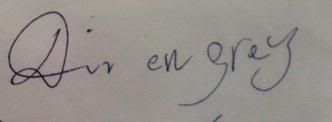 Dir en grey